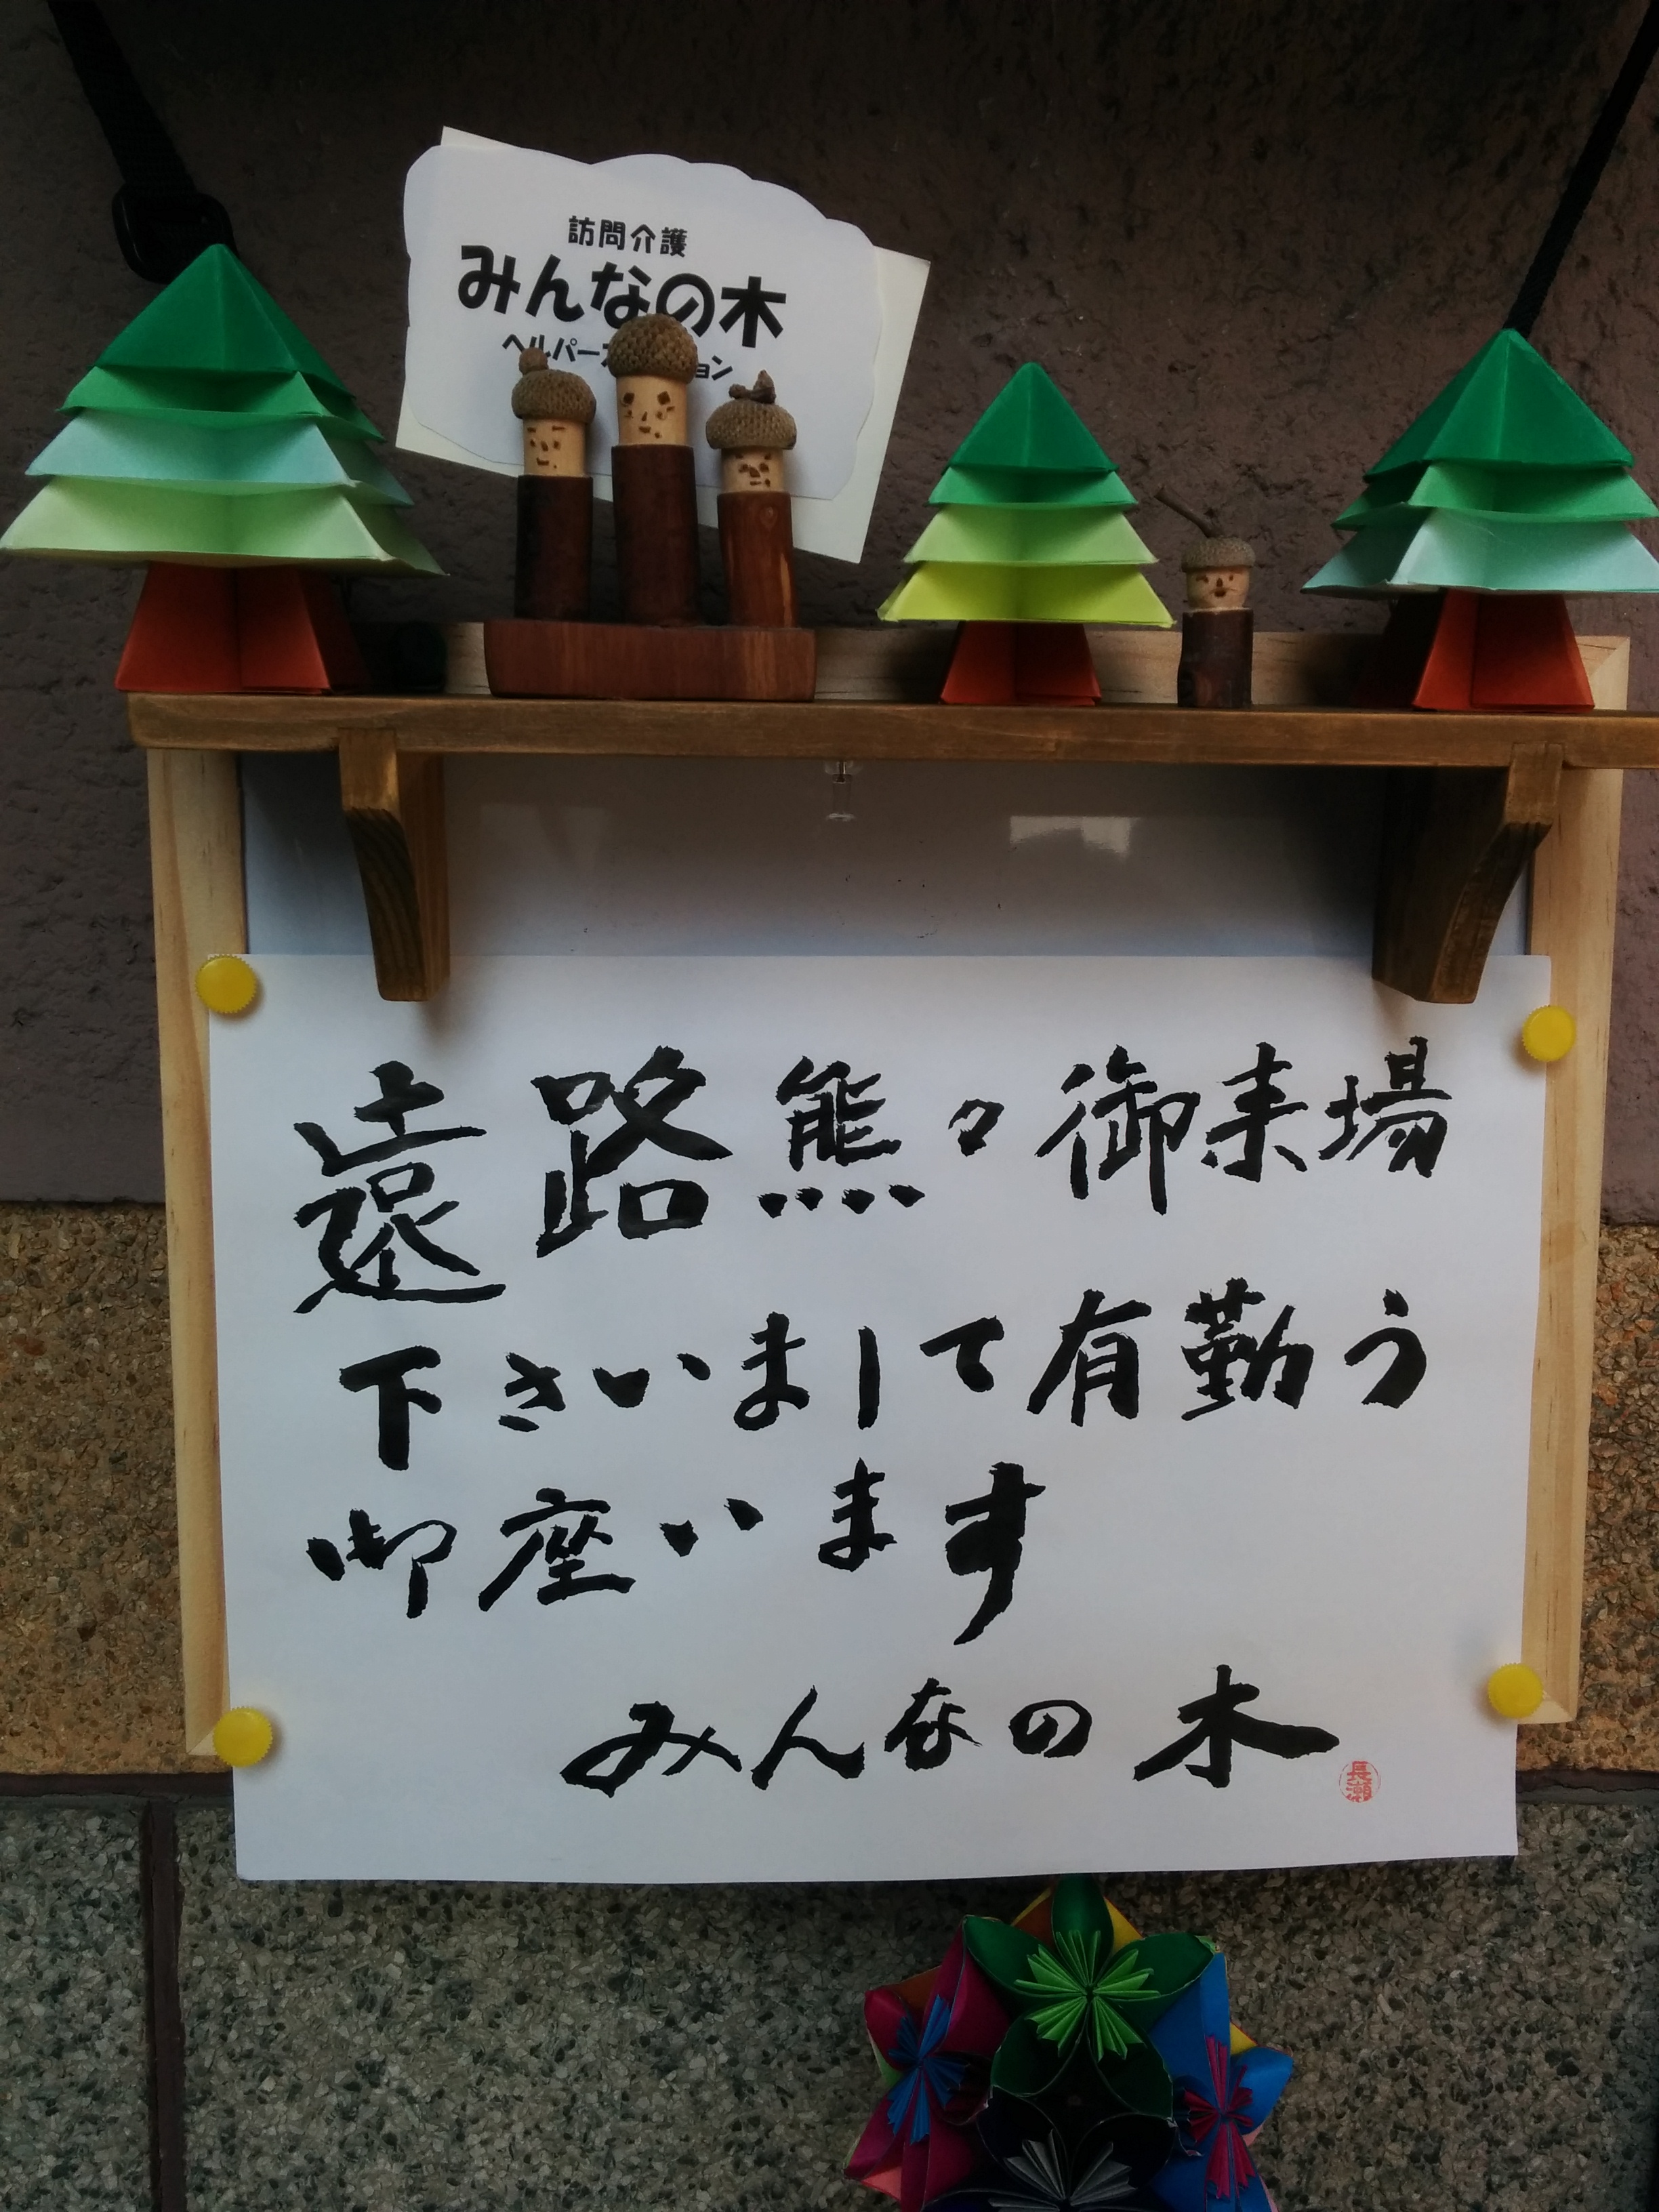 訪問介護
みんなの木
遠路熊々御来場
下さいまして有勤う
御座います
みんなの木
長瀬